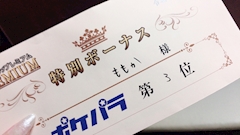 プレミアム
MIUM
特別ボーナス
ももか 様
第3位
ポケパラ